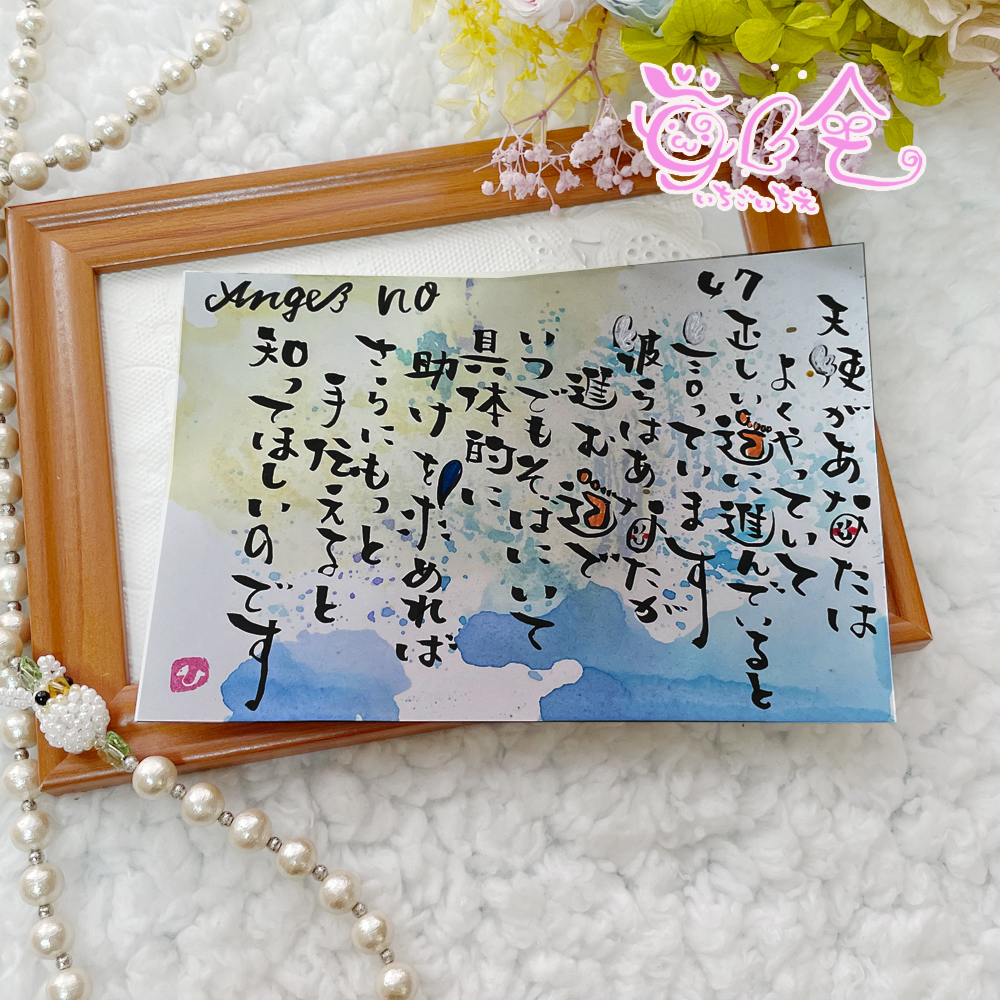 Angel no 47
天使があなたは
よくやっていて
正しい道に進んでいると
言っています
彼らはあなたが
進む道で
いつでもそばにいて
具体的に
助けを求めれば
さらにもっと
手伝えると
知ってほしいのです
ひ
いちごいちえ